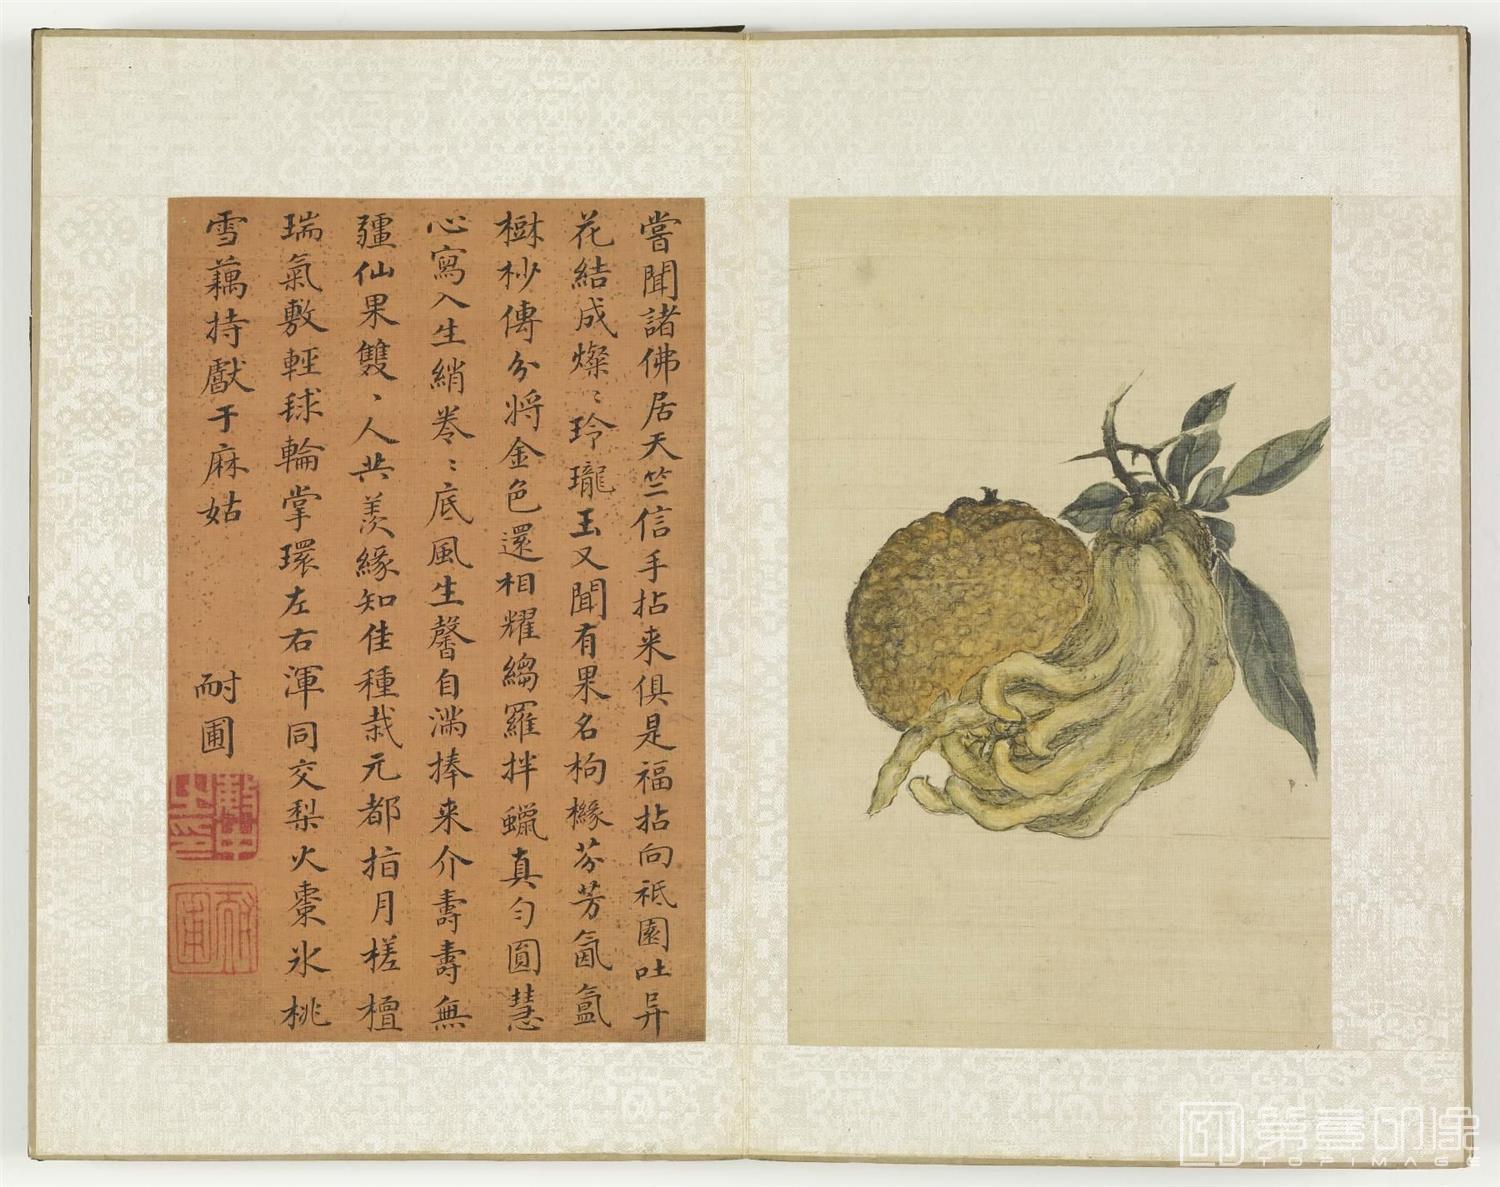 嘗聞諸佛居天竺信手拈来俱是福拈向祇園吐异
花結成燦〻玲瓏玉又聞有果名枸櫞芬芳氤氳
樹杪傳分將金色還相耀縐羅拌蠟真勻圓慧
心寫入生綃卷〻底風生馨自滿捧来介壽壽無
疆仙果雙〻人共羨緣知佳種栽元都指月槎檀
瑞氣敷輕毬輪掌環左右渾同交梨火棗氷桃
雪藕持獻于麻姑
耐圃
耐圃
第壹印象
TOPIMAGE